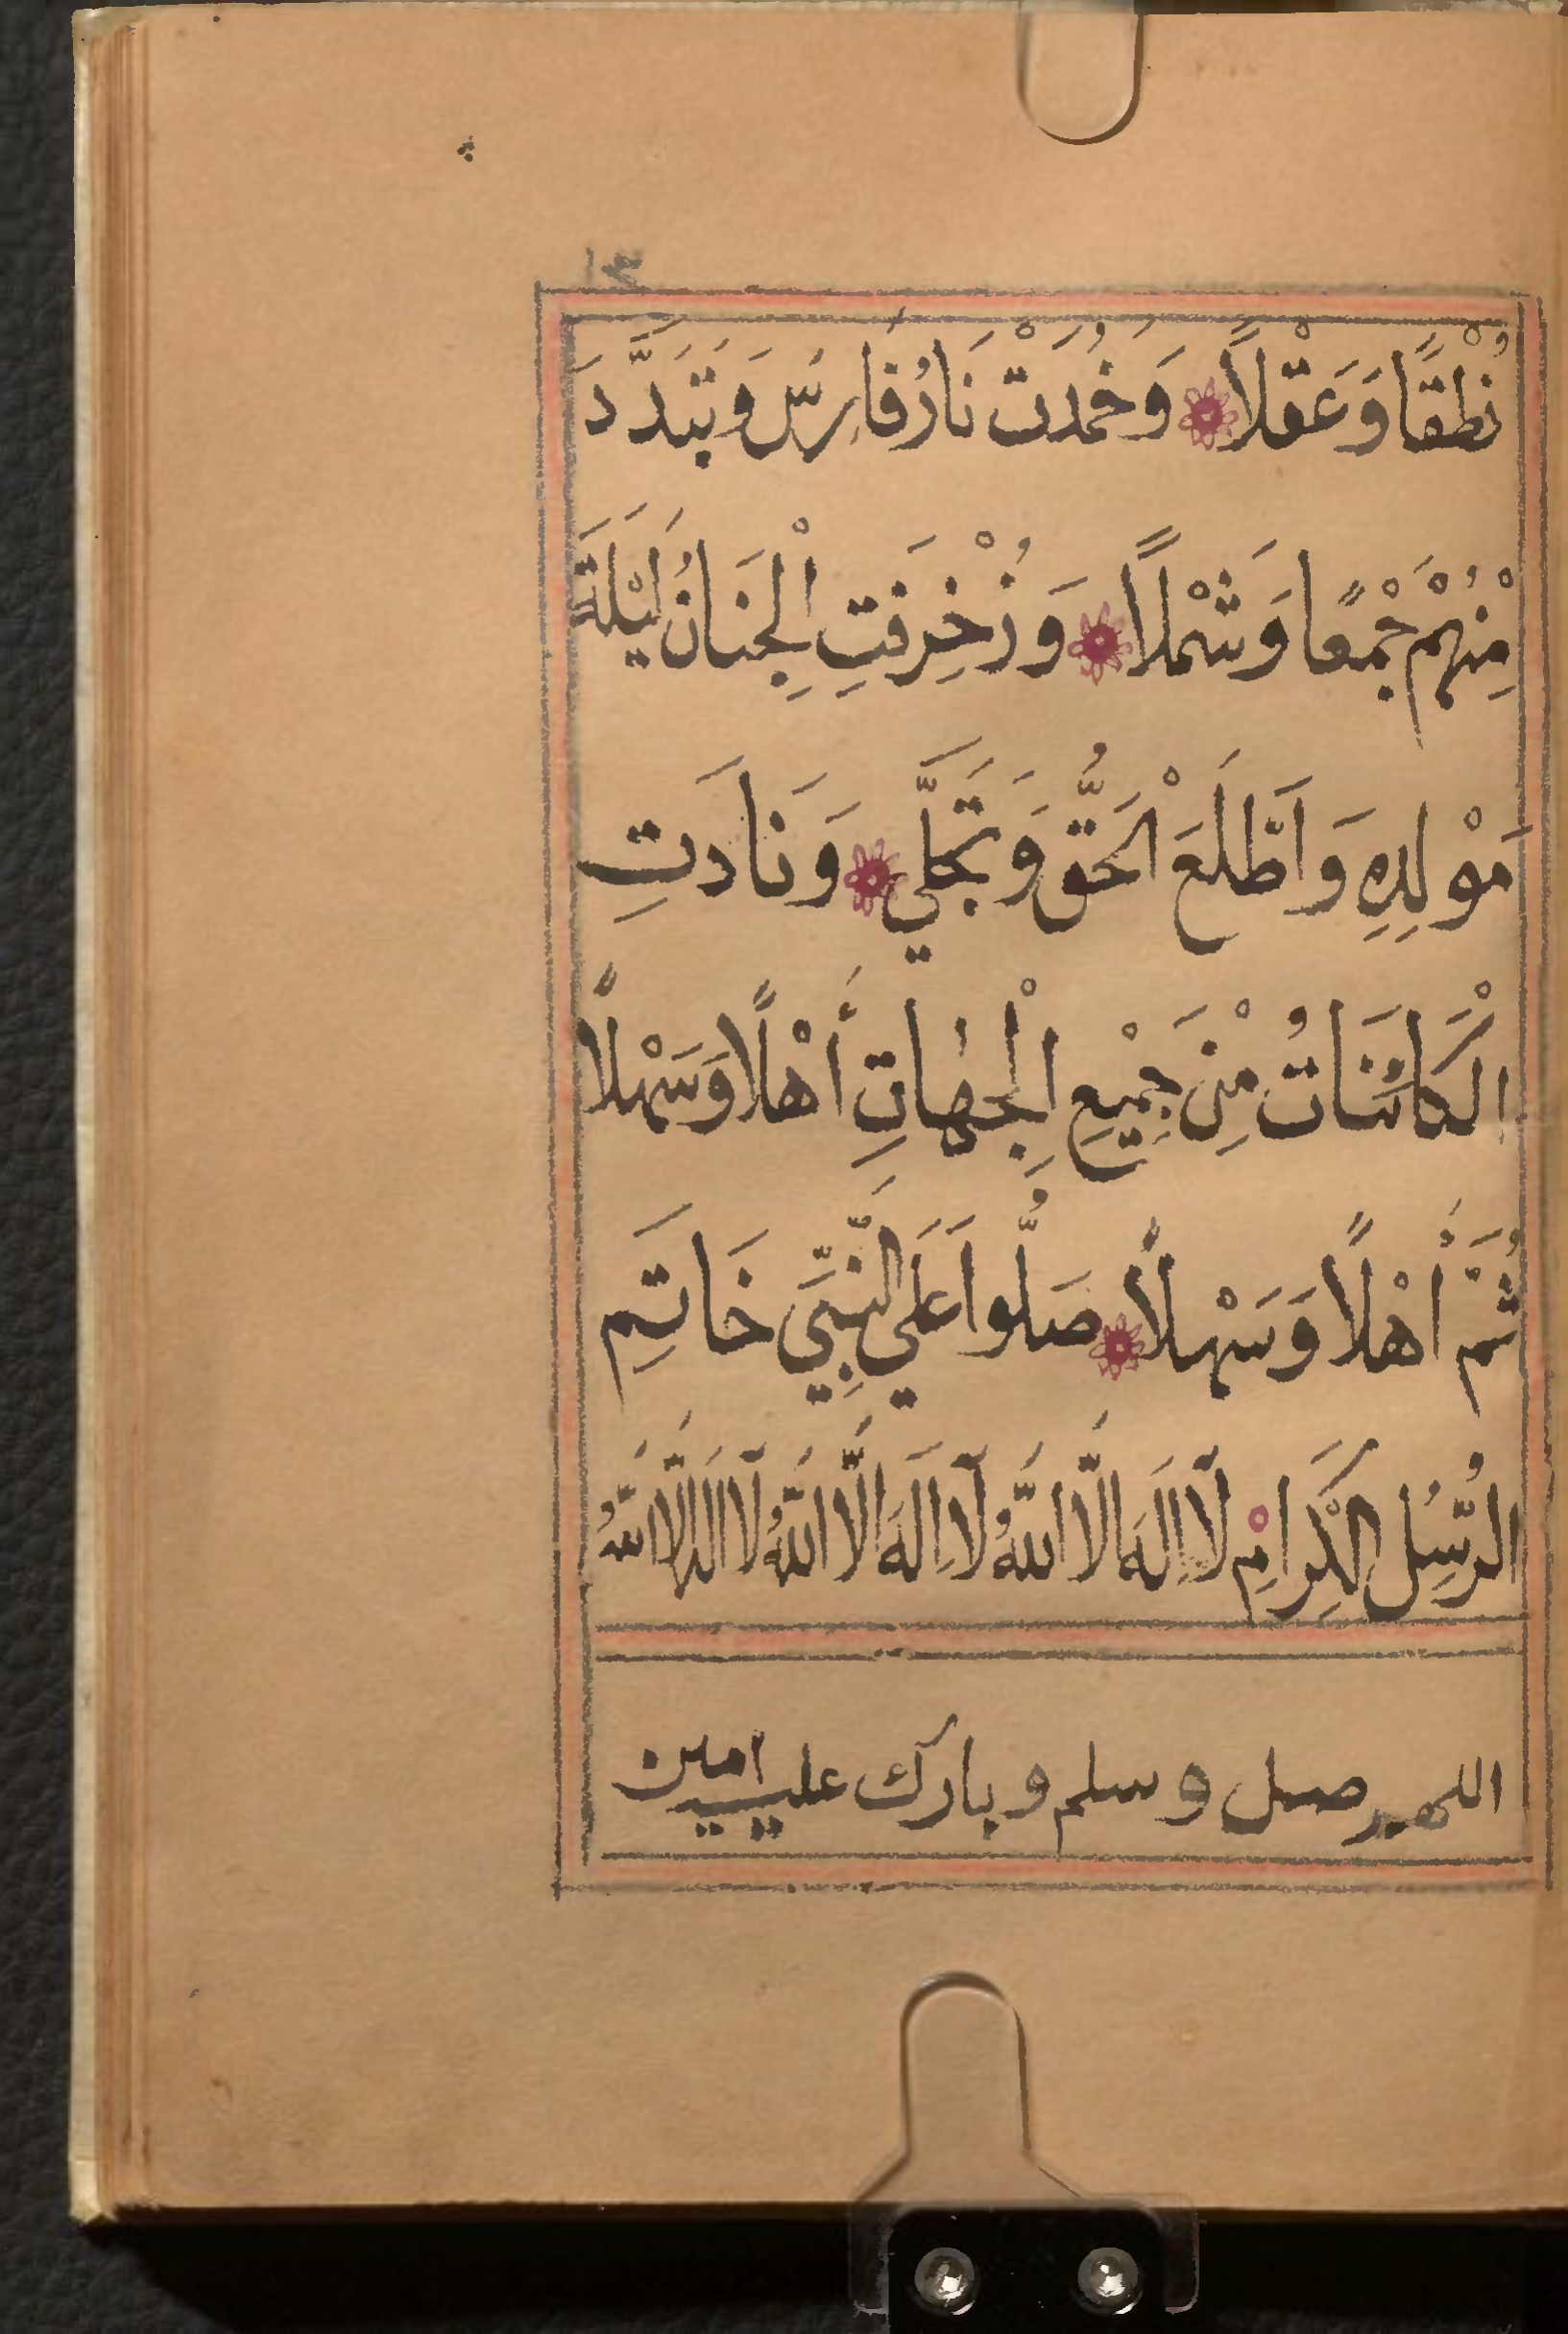 ١٣
نُطْقًا وَعَقْلًا وَخُمِدَتْ نَارُ فَارِسَ وَتَبَدَّدَ
مِنْهُمْ جَمْعًا وَشَمْلًا وَزُخْرِفَتِ الْجِنَانُ لَيْلَةَ
مَوْلِدِهِ وَاَطَّلَعَ الْحَقُّ وَتَجَلَّي وَنَادَتِ
الْكَائِنَاتُ مِنْ جَمِيْعِ الْجِهَاتِ أَهْلًا وَسَهْلًا
ثُمَّ أَهْلًا وَسَهْلًا صَلُّوا عَلَي النَّبِيِّ خَاتَمِ
الرُّسُلِ الْكِرَامِ لَآ اِلَهَ اِلَّا اللَّهُ لَآ اِلَهَ اِلَّا اللَّهُ لَآ اِلَهَ اِلَّا اللَّهُ
اللهم صل وسلم وبارك عليه امين